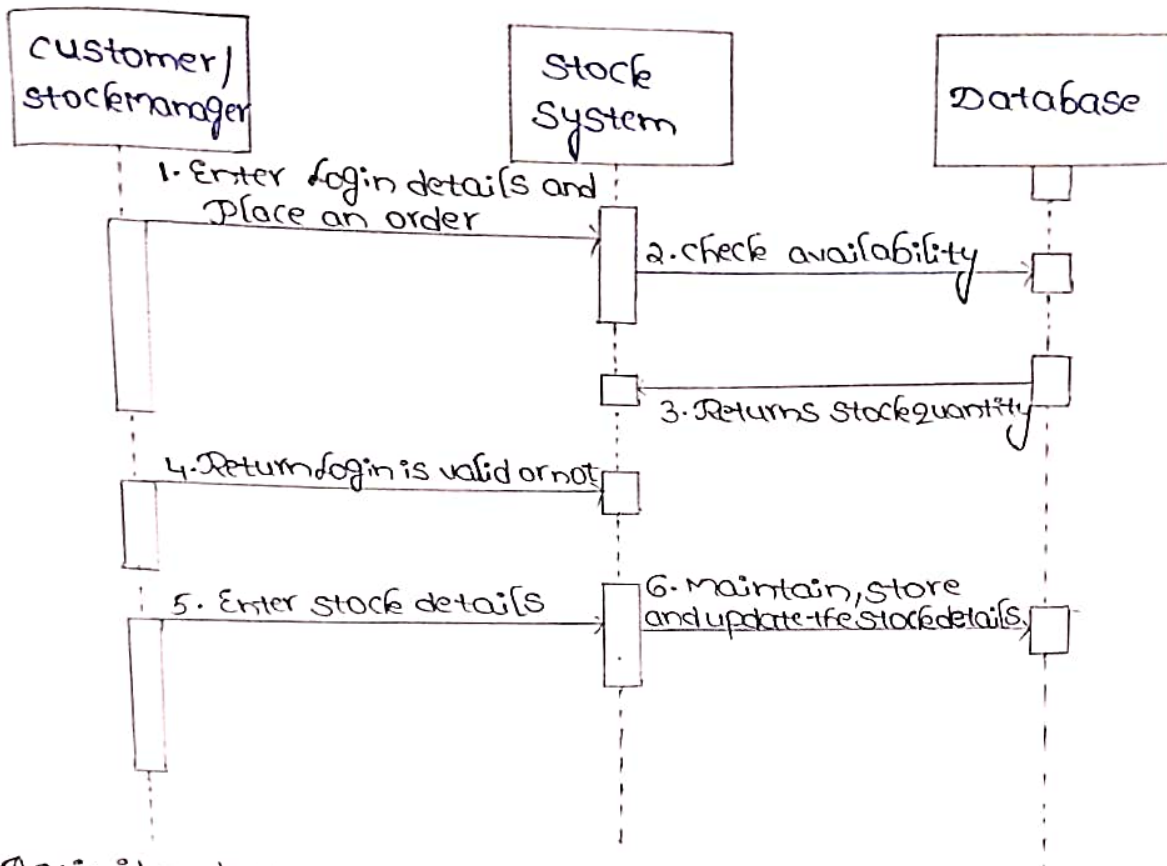 customer/
stockmanager
Stock
System
Database
1. Enter login details and
Place an order
2. check availability
3. Returns stock quantity
4. Return login is valid or not
5. Enter stock details
6. Maintain, store
and update the stock details.